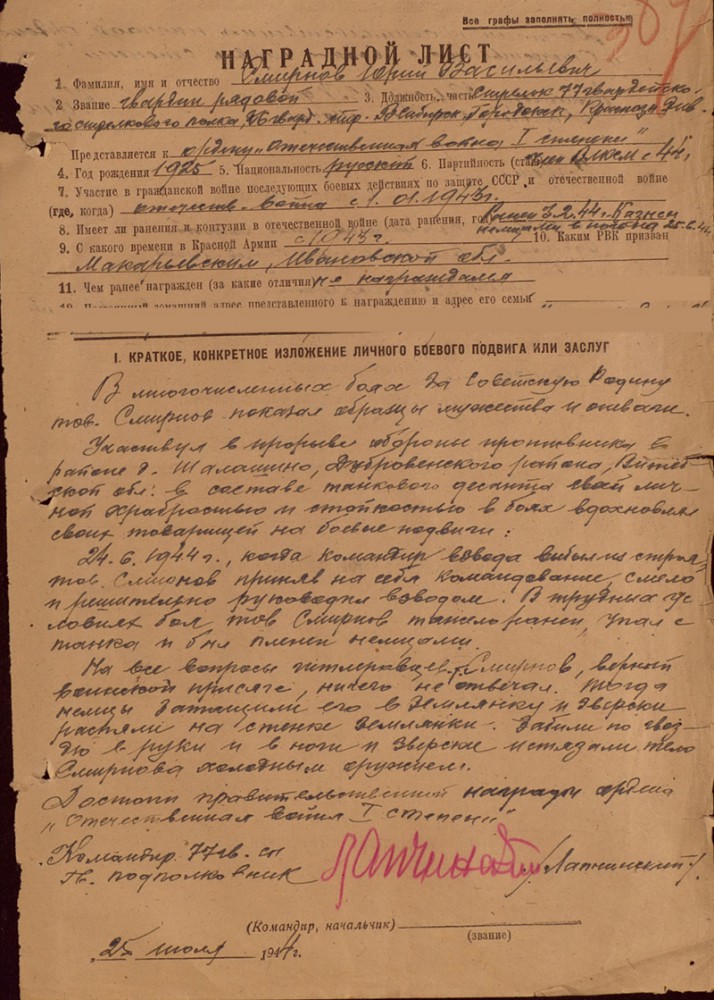 Все графы заполнять полностью
387
НАГРАДНОЙ ЛИСТ
1. Фамилия, имя и отчество Смирнов Юрий Васильевич
2 Звание гвардии рядовой 3. Должность, часть Стрелок 77 гвардейско-
го стрелкового полка, 26 гвард. стр. В Сибирск. Городокск, Краснозн Див.
Представляется к ордену „Отечественная война I степени"
4. Год рождения 1925 5. Национальность русский 6. Партийность член ВЛКСМ с 44 г.
7. Участие в гражданской войне последующих боевых действиях по защите СССР и отечественной войне
(где, когда) отечеств. война с 1.01.1943 г.
8. Имеет ли ранения и контузии в отечественной войне (дата ранения, ранен 3.2.44 г. Казнен
немцами 25.6.44
9. С какого времени в Красной Армии с 1943 г. 10. Каким РВК призван
Макарьевским, Ивановской обл.
11. Чем ранее награжден (за какие отличия) не награждался
домашний адрес представленного к награждению и адрес его семьи
I. КРАТКОЕ, КОНКРЕТНОЕ ИЗЛОЖЕНИЕ ЛИЧНОГО БОЕВОГО ПОДВИГА ИЛИ ЗАСЛУГ
В многочисленных боях за Советскую Родину
тов. Смирнов показал образцы мужества и отваги.
Участвуя в прорыве обороны противника в
районе д. Шалашино, Дубровенского района, Витеб-
ской обл. в составе танкового десанта своей лич-
ной храбростью и стойкостью в боях вдохновлял
своих товарищей на боевые подвиги:
24.6.1944 г., когда командир взвода выбыл из строя,
тов. Смирнов приняв на себя командование, смело
и решительно руководил взводом. В трудных ус-
ловиях боя тов Смирнов тяжело ранен, упал с
танка и был пленен немцами.
На все вопросы гитлеровцев т. Смирнов, верный
воинской присяге, ничего не отвечал. Тогда
немцы затащили его в землянку и зверски
распяли на стенке землянки. Забили по гвоз-
дю в руки и в ноги и зверски истязали тело
Смирнова холодным оружием.
Достоин правительственной награды ордена
„Отечественная война I степени"
Командир 77 гв. сп
Гв. подполковник Лапчинский /Лапчинский/.
(Командир, начальник) (звание)
„25" июля 1944 г.